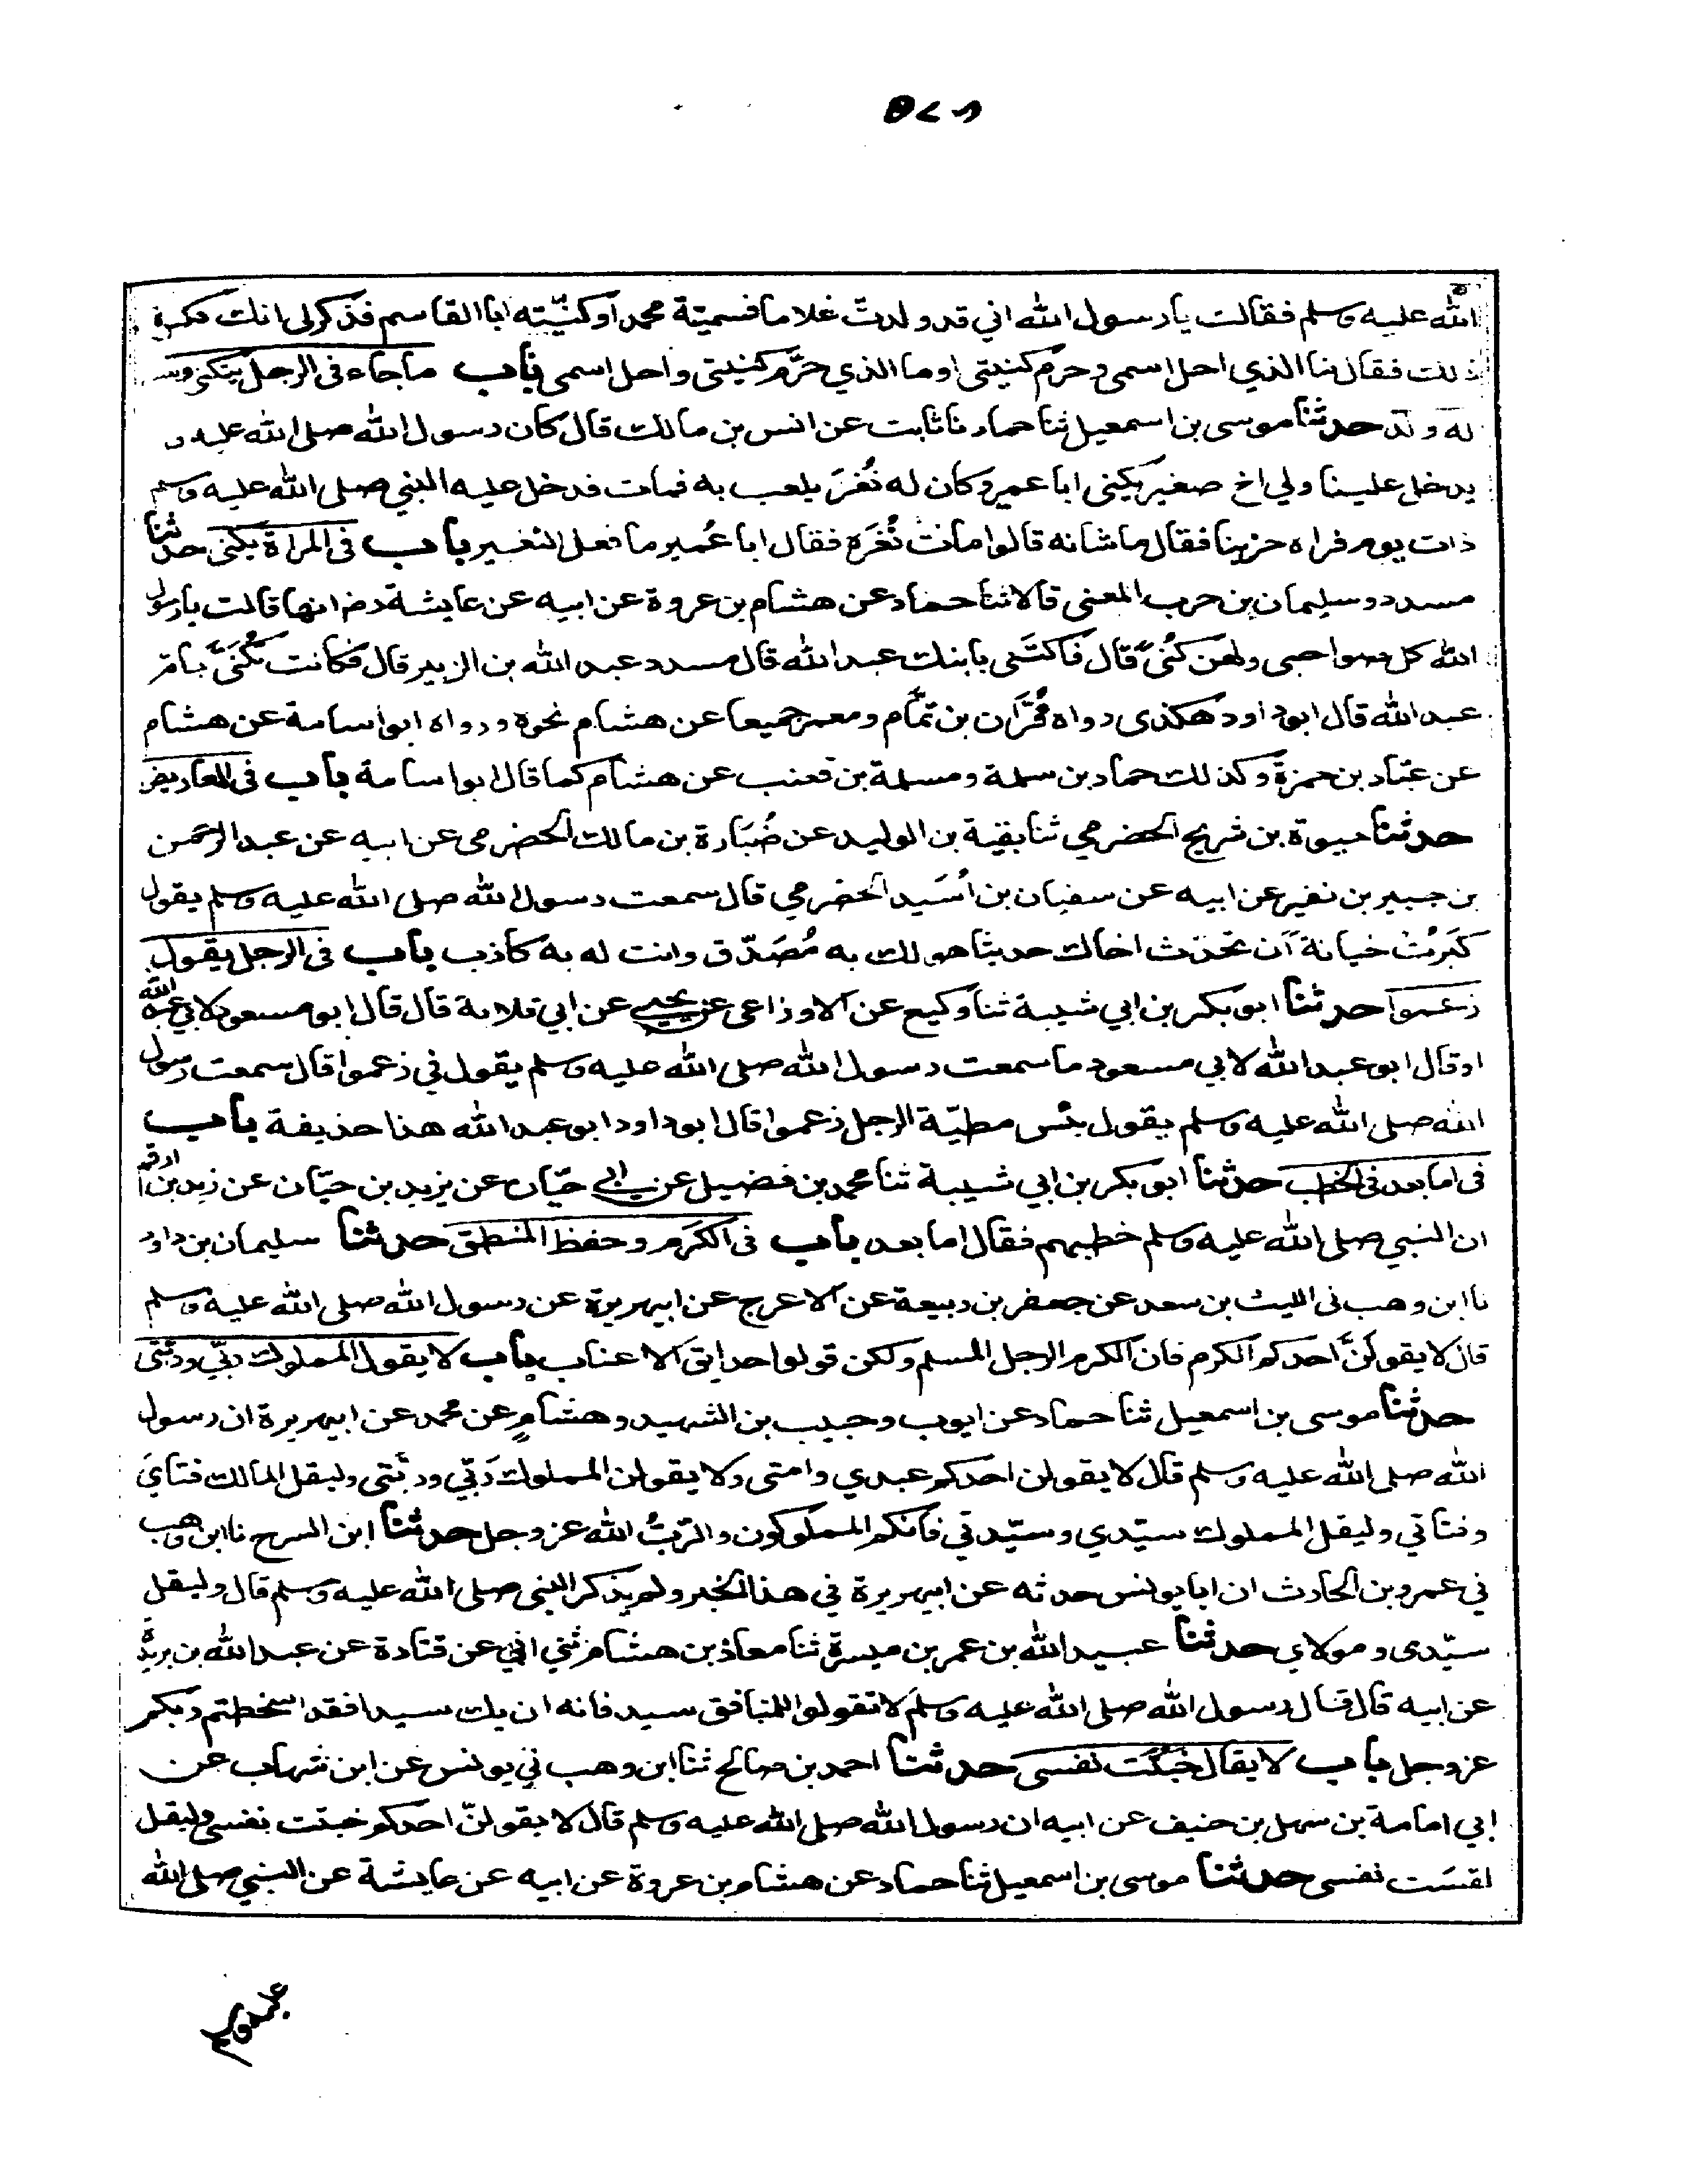 ٥٧٦
الله عليه وسلم فقالت يا رسول الله اني قد ولدت غلاما فسميته محمدا وكنّيته ابا القاسم فذكر لي انك تكره
ذلك فقال ما الذي احل اسمي وحرم كنيتي او ما الذي حرّم كنيتي واحل اسمي باب ما جاء في الرجل يتكنى وليس
له ولد حدثنا موسى بن اسمعيل ثنا حماد نا ثابت عن انس بن مالك قال كان رسول الله صلى الله عليه و
يدخل علينا ولي اخ صغير يكنى ابا عمير وكان له نُغَر يلعب به فمات فدخل عليه النبي صلى الله عليه وسلم
ذات يوم فراه حزينا فقال ما شانه قالوا مات نُغَره فقال ابا عُمير ما فعل النغير باب في المراة يكنى حدثنا
مسدد وسليمان بن حرب المعنى قالا ثنا حماد عن هشام بن عروة عن ابيه عن عايشة رضـ انها قالت يا رسول
الله كل صواحبي ولهن كُنىً قال فاكتَني بابنك عبد الله قال مسدد عبد الله بن الزبير قال فكانت تُكَنَّى بام
عبد الله قال ابو داود هكذى رواه قُرَّان بن تمّام ومعمر جميعا عن هشام نحوه ورواه ابو اسامة عن هشام
عن عبّاد بن حمزة وكذلك حماد بن سلمة ومسلمة بن قعنب عن هشام كما قال ابو اسامة باب في المعاريض
حدثنا حيوة بن شريح الحضرمي ثنا بقية بن الوليد عن ضُبَارة بن مالك الحضرمي عن ابيه عن عبد الرحمن
بن جبير بن نفير عن ابيه عن سفيان بن اُسَيد الحضرمي قال سمعت رسول الله صلى الله عليه وسلم يقول
كَبَرُتْ خيانة ان تحدّث اخاك حديثا هو لك به مُصَدّق وانت له به كاذب باب في الرجل يقول
زعموا حدثنا ابو بكر بن ابي شيبة ثنا وكيع عن الاوزاعي عن يحيى عن ابي قلابة قال قال ابو مسعود لابي عبد الله
او قال ابو عبد الله لابي مسعود ما سمعت رسول الله صلى الله عليه وسلم يقول في زعموا قال سمعت رسول
الله صلى الله عليه وسلم يقول بئس مطيّة الرجل زعموا قال ابو داود ابو عبد الله هذا حذيفة باب
في اما بعد في الخطب حدثنا ابو بكر بن ابي شيبة ثنا محمد بن فضيل عن ابي حيّان عن يزيد بن حيّان عن زيد بن ارقم
ان النبي صلى الله عليه وسلم خطبهم فقال اما بعد باب في الكَرَم وحفظ المنطق حدثنا سليمان بن داود
نا ابن وهب ني الليث بن سعد عن جعفر بن ربيعة عن الاعرج عن ابيهريرة عن رسول الله صلى الله عليه وسلم
قال لا يقولَنَّ احدكم الكرم فان الكرم الرجل المسلم ولكن قولوا حدايق الاعناب باب لا يقول المملوك ربّي وربّتي
حدثنا موسى بن اسمعيل ثنا حماد عن ايوب وحبيب بن الشهيد وهشامٍ عن محمد عن ابيهريرة ان رسول
الله صلى الله عليه وسلم قال لا يقولن احدكم عبدي وامتي ولا يقولن المملوك رَبّي وربّتي وليقل المالك فتايَ
وفتاتي وليقل المملوك سيّدي وسيّدتي فانكم المملوكون والرّبُّ الله عز وجل حدثنا ابن السرح نا ابن وهب
ني عمرو بن الحارث ان ابا يونس حدثه عن ابيهريرة في هذا الخبر ولم يذكر النبي صلى الله عليه وسلم قال وليقل
سيّدي ومولاي حدثنا عبيد الله بن عمر بن ميسرة ثنا معاذ بن هشام ثني ابي عن قتادة عن عبد الله بن بريدة
عن ابيه قال قال رسول الله صلى الله عليه وسلم لا تقولوا للمنافق سيد فانه ان يك سيدا فقد اسخطتم ربكم
عز وجل باب لا يقال خَبُثَت نفسي حدثنا احمد بن صالح ثنا ابن وهب ني يونس عن ابن شهاب عن
ابي امامة بن سهل بن حنيف عن ابيه ان رسول الله صلى الله عليه وسلم قال لا يقولنّ احدكم خبثت نفسي وليقل
لقسَت نفسي حدثنا موسى بن اسمعيل ثنا حماد عن هشام بن عروة عن ابيه عن عايشة عن النبي صلى الله